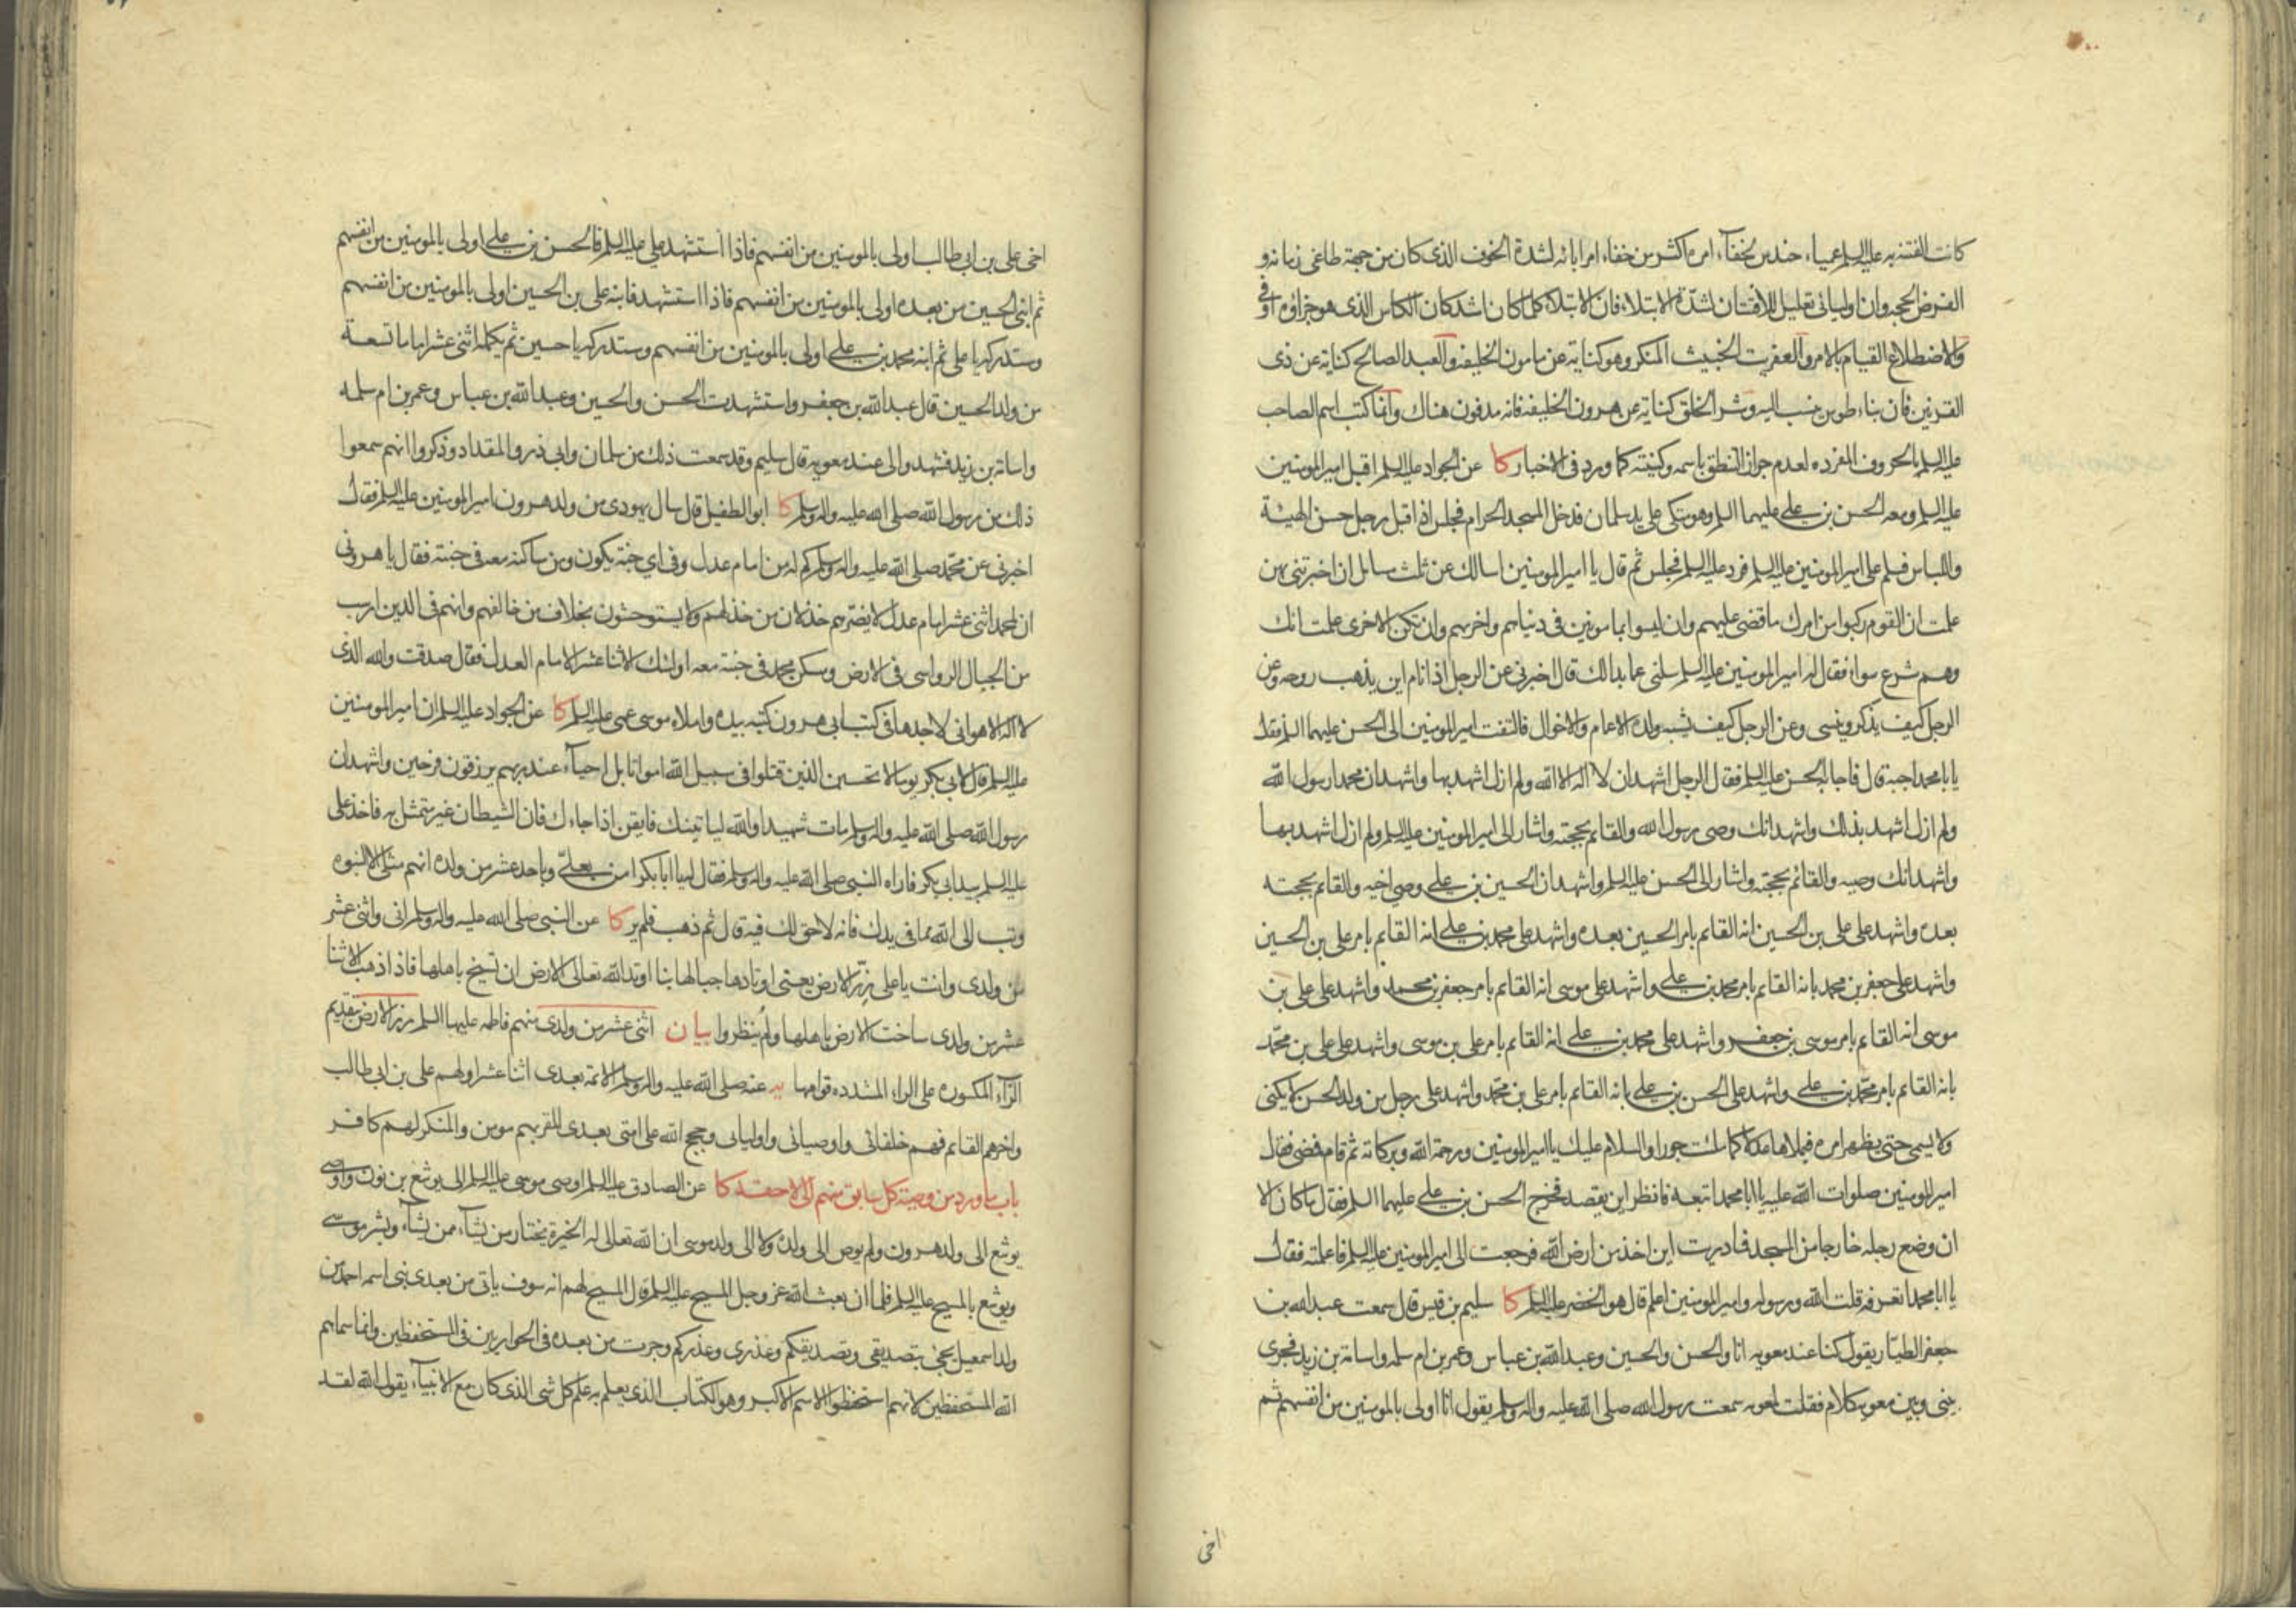 كانت الفتنة به عليه السلم عمياء حندس لخفآء امره اكثر من خفاء امر ابائه لشدة الخوف الذي كان من جهة طاغي زمانه و
الفرض الحجه وان اوليائي تعليل للافتتان لشدة الابتلاء فان الابتلاء كلما كان اشد كان الكاس الذي هو جزاؤه اوفى
والاضطلاع القيام بالامر والعفريت الخبيث المنكر وهو كناية عن مامون الخليفه والعبد الصالح كناية عن ذي
القرنين فان بناء طوس ينسب اليه وشر الخلق كناية عن هرون الخليفه فانه مدفون هناك وانما كتب اسم الصاحب
عليه السلم بالحروف المفرده لعدم جواز النطق باسمه وكنيته كما ورد في الاخبار كا عن الجواد عليه السلم اقبل امير المومنين
عليه السلم ومعه الحسن بن علي عليهما السلم وهو متكي على يد سلمان فدخل المسجد الحرام فجلس اذ اقبل رجل حسن الهيئة
واللباس فسلم على امير المومنين عليه السلم فرد عليه السلم فجلس ثم قال يا امير المومنين اسالك عن ثلث مسايل ان اخبرتني بهن
علمت ان القوم ركبوا من امرك ما قضى عليهم وان ليسوا بمامونين في دنياهم واخرتهم وان تكن الاخرى علمت انك
وهم شرع سواء فقال له امير المومنين عليه السلم سلني عما بدا لك قال اخبرني عن الرجل اذا نام اين يذهب روحه وعن
الرجل كيف يذكر وينسى وعن الرجل كيف يشبه ولده الاعمام والاخوال فالتفت امير المومنين الى الحسن عليهما السلم فقال
يا با محمد اجبه قال فاجابه الحسن عليه السلم فقال الرجل اشهد ان لا اله الا الله ولم ازل اشهد بها واشهد ان محمدا رسول الله
ولم ازل اشهد بذلك واشهد انك وصي رسول الله والقائم بحجته واشار الى امير المومنين عليه السلم ولم ازل اشهد بها
واشهد انك وصيه والقائم بحجته واشار الى الحسن عليه السلم واشهد ان الحسين بن علي وصي اخيه والقايم بحجته
بعده واشهد على علي بن الحسين انه القايم بامر الحسين بعده واشهد على محمد بن علي انه القايم بامر علي بن الحسين
واشهد على جعفر بن محمد بانه القايم بامر محمد بن علي واشهد على موسى انه القايم بامر جعفر بن محمد واشهد على علي بن
موسى انه القايم بامر موسى بن جعفر واشهد على محمد بن علي انه القايم بامر علي بن موسى واشهد على علي بن محمد
بانه القايم بامر محمد بن علي واشهد على الحسن بن علي بانه القايم بامر علي بن محمد واشهد على رجل من ولد الحسن لا يكنى
ولا يسمى حتى يظهر امره فيملاها عدلا كما ملئت جورا والسلام عليك يا امير المومنين ورحمة الله وبركاته ثم قام فمضى فقال
امير المومنين صلوات الله عليه يا ابا محمد اتبعه فانظر اين يقصد فخرج الحسن بن علي عليهما السلم فقال ما كان الا
ان وضع رجله خارجا من المسجد فما دريت اين اخذ من ارض الله فرجعت الى امير المومنين عليه السلم فاعلمته فقال
يا ابا محمد اتعرفه قلت الله ورسوله وامير المومنين اعلم قال هو الخضر عليه السلم كا سليم بن قيس قال سمعت عبد الله بن
جعفر الطيار يقول كنا عند معويه انا والحسن والحسين وعبد الله بن عباس وعمر بن ام سلمه واسامة بن زيد فجرى
بيني وبين معويه كلام فقلت لمعويه سمعت رسول الله صلى الله عليه واله وسلم يقول انا اولى بالمومنين من انفسهم ثم
اخي
اخي علي بن ابي طالب اولى بالمومنين من انفسهم فاذا استشهد علي عليه السلم فالحسن بن علي اولى بالمومنين من انفسهم
ثم ابني الحسين من بعده اولى بالمومنين من انفسهم فاذا استشهد فابنه علي بن الحسين اولى بالمومنين من انفسهم
وستدركه يا علي ثم ابنه محمد بن علي اولى بالمومنين من انفسهم وستدركه يا حسين ثم يكمله اثنى عشر اماما تسعة
من ولد الحسين قال عبد الله بن جعفر واستشهدت الحسن والحسين وعبد الله بن عباس وعمر بن ام سلمه
واسامة بن زيد فشهدوا لي عند معويه قال سليم وقد سمعت ذلك من سلمان وابي ذر والمقداد وذكروا انهم سمعوا
ذلك من رسول الله صلى الله عليه واله وسلم كا ابو الطفيل قال سال يهودي من ولد هرون امير المومنين عليه السلم فقال
اخبرني عن محمد صلى الله عليه واله وسلم كم له من امام عدل وفي اي جنة يكون ومن ساكنه معه في جنته فقال يا هروني
ان لمحمد اثنى عشر امام عدل لا يضرهم خذلان من خذلهم ولا يستوحشون بخلاف من خالفهم وانهم في الدين ارسب
من الجبال الرواسي في الارض وسكن محمد في جنته معه اولئك الاثنا عشر الامام العدل فقال صدقت والله الذي
لا اله الا هو اني لاجدها في كتب ابي هرون كتبه بيده واملاه موسى عمي عليه السلم كا عن الجواد عليه السلم ان امير المومنين
عليه السلم قال لابي بكر يوما لا تحسبن الذين قتلوا في سبيل الله امواتا بل احيآء عند ربهم يرزقون فرحين واشهد ان
رسول الله صلى الله عليه واله وسلم مات شهيدا والله لياتينك فايقن اذا جاءك فان الشيطان غير متمثل به فاخذ علي
عليه السلم بيد ابي بكر فاراه النبي صلى الله عليه واله وسلم فقال له يا ابا بكر امن بعلي وباحد عشر من ولده انهم مثلي الا النبوه
وتب الى الله مما في يدك فانه لا حق لك فيه قال ثم ذهب فلم ير كا عن النبي صلى الله عليه واله وسلم اني واثنى عشر
من ولدي وانت يا علي زر الارض يعني اوتادها جبالها بنا اوتد الله تعالى الارض ان تسيخ باهلها فاذا ذهب الاثنا
عشر من ولدي ساخت الارض باهلها ولم ينظروا بيان اثنى عشر من ولدي منهم فاطمه عليها السلم زر الارض بتقديم
الزآء المكسوره على الراء المشدده قوامها يه عنه صلى الله عليه واله وسلم الائمة بعدي اثنا عشر اولهم علي بن ابي طالب
واخرهم القايم فهم خلفائي واوصيائي واوليائي وحجج الله على امتي بعدي المقر بهم مومن والمنكر لهم كافر
باب ما ورد من وصية كل سابق منهم الى لاحقه كا عن الصادق عليه السلم اوصى موسى عليه السلم الى يوشع بن نون واوصى
يوشع الى ولد هرون ولم يوص الى ولده ولا الى ولد موسى ان الله تعالى له الخيرة يختار من يشآء ممن يشآء وبشر موسى
ويوشع بالمسيح عليه السلم فلما ان بعث الله عز وجل المسيح عليه السلم قال المسيح لهم انه سوف ياتي من بعدي نبي اسمه احمد من
ولد اسمعيل يجيئ بتصديقي وتصديقكم وعذري وعذركم وجرت من بعده في الحواريين في المستحفظين وانما سماهم
الله المستحفظين لانهم استحفظوا الاسم الاكبر وهو الكتاب الذي يعلم به علم كل شي الذي كان مع الانبيآء يقول الله لقد